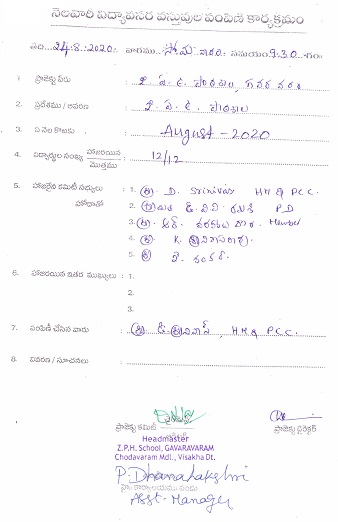 నెలవారీ విద్యావసర వస్తువుల పంపిణీ కార్యక్రమం
తేది 24.8.2020 వారము సోమ వారం సమయం 9.30 గం
1. ప్రాజెక్టు పేరు : గవరవరం
2. ప్రదేశము / వివరణ :
3. ఏ నెల కొరకు : August - 2020
4. విద్యార్థుల సంఖ్య హాజరయిన / మొత్తము : 12/12
5. హాజరైన కమిటీ సభ్యులు : 1. D. Srinivas HM & PCC.
హోదాతో 2. P D
3. Member
4. K.
5. శంకర్.
6. హాజరయిన ఇతర ముఖ్యులు : 1.
2.
3.
7. పంపిణీ చేసిన వారు : HM & PCC.
8. వివరణ / సూచనలు :
ప్రాజెక్టు కమిటీ ప్రాజెక్టు డైరెక్టర్
Headmaster
Z.P.H. School, GAVARAVARAM
Chodavaram Mdl., Visakha Dt.
P. Dhanalakshmi
Asst. Manager